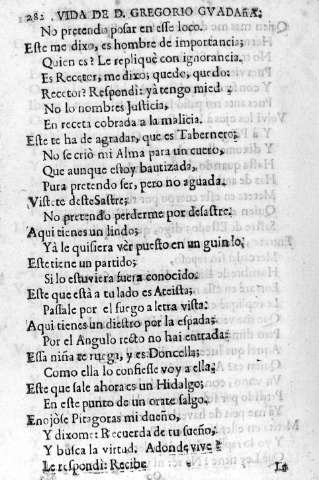 282 . VIDA DE D. GREGORIO GVADAñA;
No pretendo posar en esse loco.
Este me dixo, es hombre de importancia;
Quien es? Le repliquè con ignorancia.
Es Recetor, me dixo; quedo, quedo:
Recetor? Respondi: yà tengo mied
No lo nombres Justicia,
En receta cobrada a la malicia.
Este te ha de agradar, que es Tabernero;
No se criò mi Alma para un cuero,
Que aunque estoy bautizada,
Pura pretendo ser, pero no aguada.
Vistete deste Sastre;
No pretendo perderme por desastre.
Aqui tienes un lindo;
Yà le quisiera vèr puesto en un guindo;
Este tiene un partido;
Si lo estuviera fuera conocido.
Este que està a tu lado es Ateista;
Passale por el fuego a letra vista.
Aqui tienes un diestro por la espada;
Por el Angulo recto no hai entrada:
Essa niña te ruega, y es Doncella;
Como ella lo confiesse voy a ella;
Este que sale ahora es un Hidalgo;
En este punto de un orate salgo.
Enojòse Pitagoras mi dueño,
Y dixome: Recuerda de tu sueño,
Y busca la virtud. Adonde vive?
Le respondi: Recibe
La